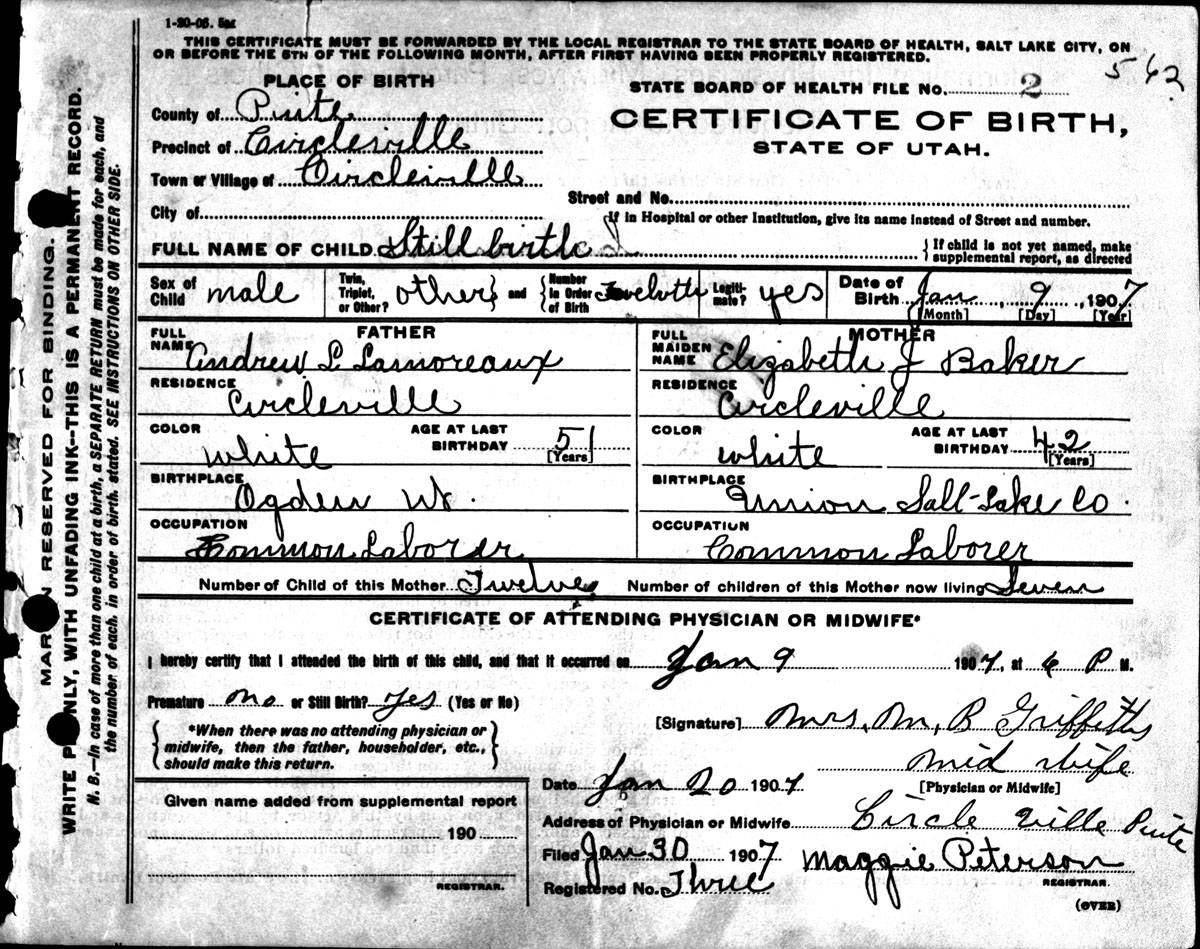 1-20-06. 5M
THIS CERTIFICATE MUST BE FORWARDED BY THE LOCAL REGISTRAR TO THE STATE BOARD OF HEALTH, SALT LAKE CITY, ON
OR BEFORE THE 5TH OF THE FOLLOWING MONTH, AFTER FIRST HAVING BEEN PROPERLY REGISTERED.
562
PLACE OF BIRTH
STATE BOARD OF HEALTH FILE No. 2
County of Piute
CERTIFICATE OF BIRTH,
Precinct of Circleville
STATE OF UTAH.
Town or Village of Circleville
Street and No.
City of
If in Hospital or other Institution, give its name instead of Street and number.
FULL NAME OF CHILD Still birth
{ If child is not yet named, make
supplemental report, as directed
Sex of Child male Twin, Triplet, or Other? other } and { Number in Order of Birth Twelvth Legitimate? yes Date of Birth Jan 9, 1907
[Month] [Day] [Year]
FATHER MOTHER
FULL NAME Andrew L Lamoreaux FULL MAIDEN NAME Elizabeth J Baker
RESIDENCE RESIDENCE
Circleville Circleville
COLOR white AGE AT LAST BIRTHDAY 51 [Years] COLOR white AGE AT LAST BIRTHDAY 42 [Years]
BIRTHPLACE BIRTHPLACE
Ogden Ut. Union Salt-Lake Co.
OCCUPATION OCCUPATION
Common Laborer Common Laborer
Number of Child of this Mother Twelve Number of children of this Mother now living Seven
CERTIFICATE OF ATTENDING PHYSICIAN OR MIDWIFE*
I hereby certify that I attended the birth of this child, and that it occurred on Jan 9 1907, at 6 P M.
Premature no or Still Birth? Yes (Yes or No)
[Signature] Mrs. M. B Griffiths
{ *When there was no attending physician or
midwife, then the father, householder, etc.,
should make this return. }
mid wife
[Physician or Midwife]
Date Jan 20 1907
Given name added from supplemental report
Address of Physician or Midwife Circle ville Piute
190
Filed Jan 30 1907 Maggie Peterson
REGISTRAR.
REGISTRAR.
Registered No. Three
(OVER)
MARGIN RESERVED FOR BINDING.
WRITE PLAINLY, WITH UNFADING INK--THIS IS A PERMANENT RECORD.
N. B.—In case of more than one child at a birth, a SEPARATE RETURN must be made for each, and
the number of each, in order of birth, stated. SEE INSTRUCTIONS ON OTHER SIDE.